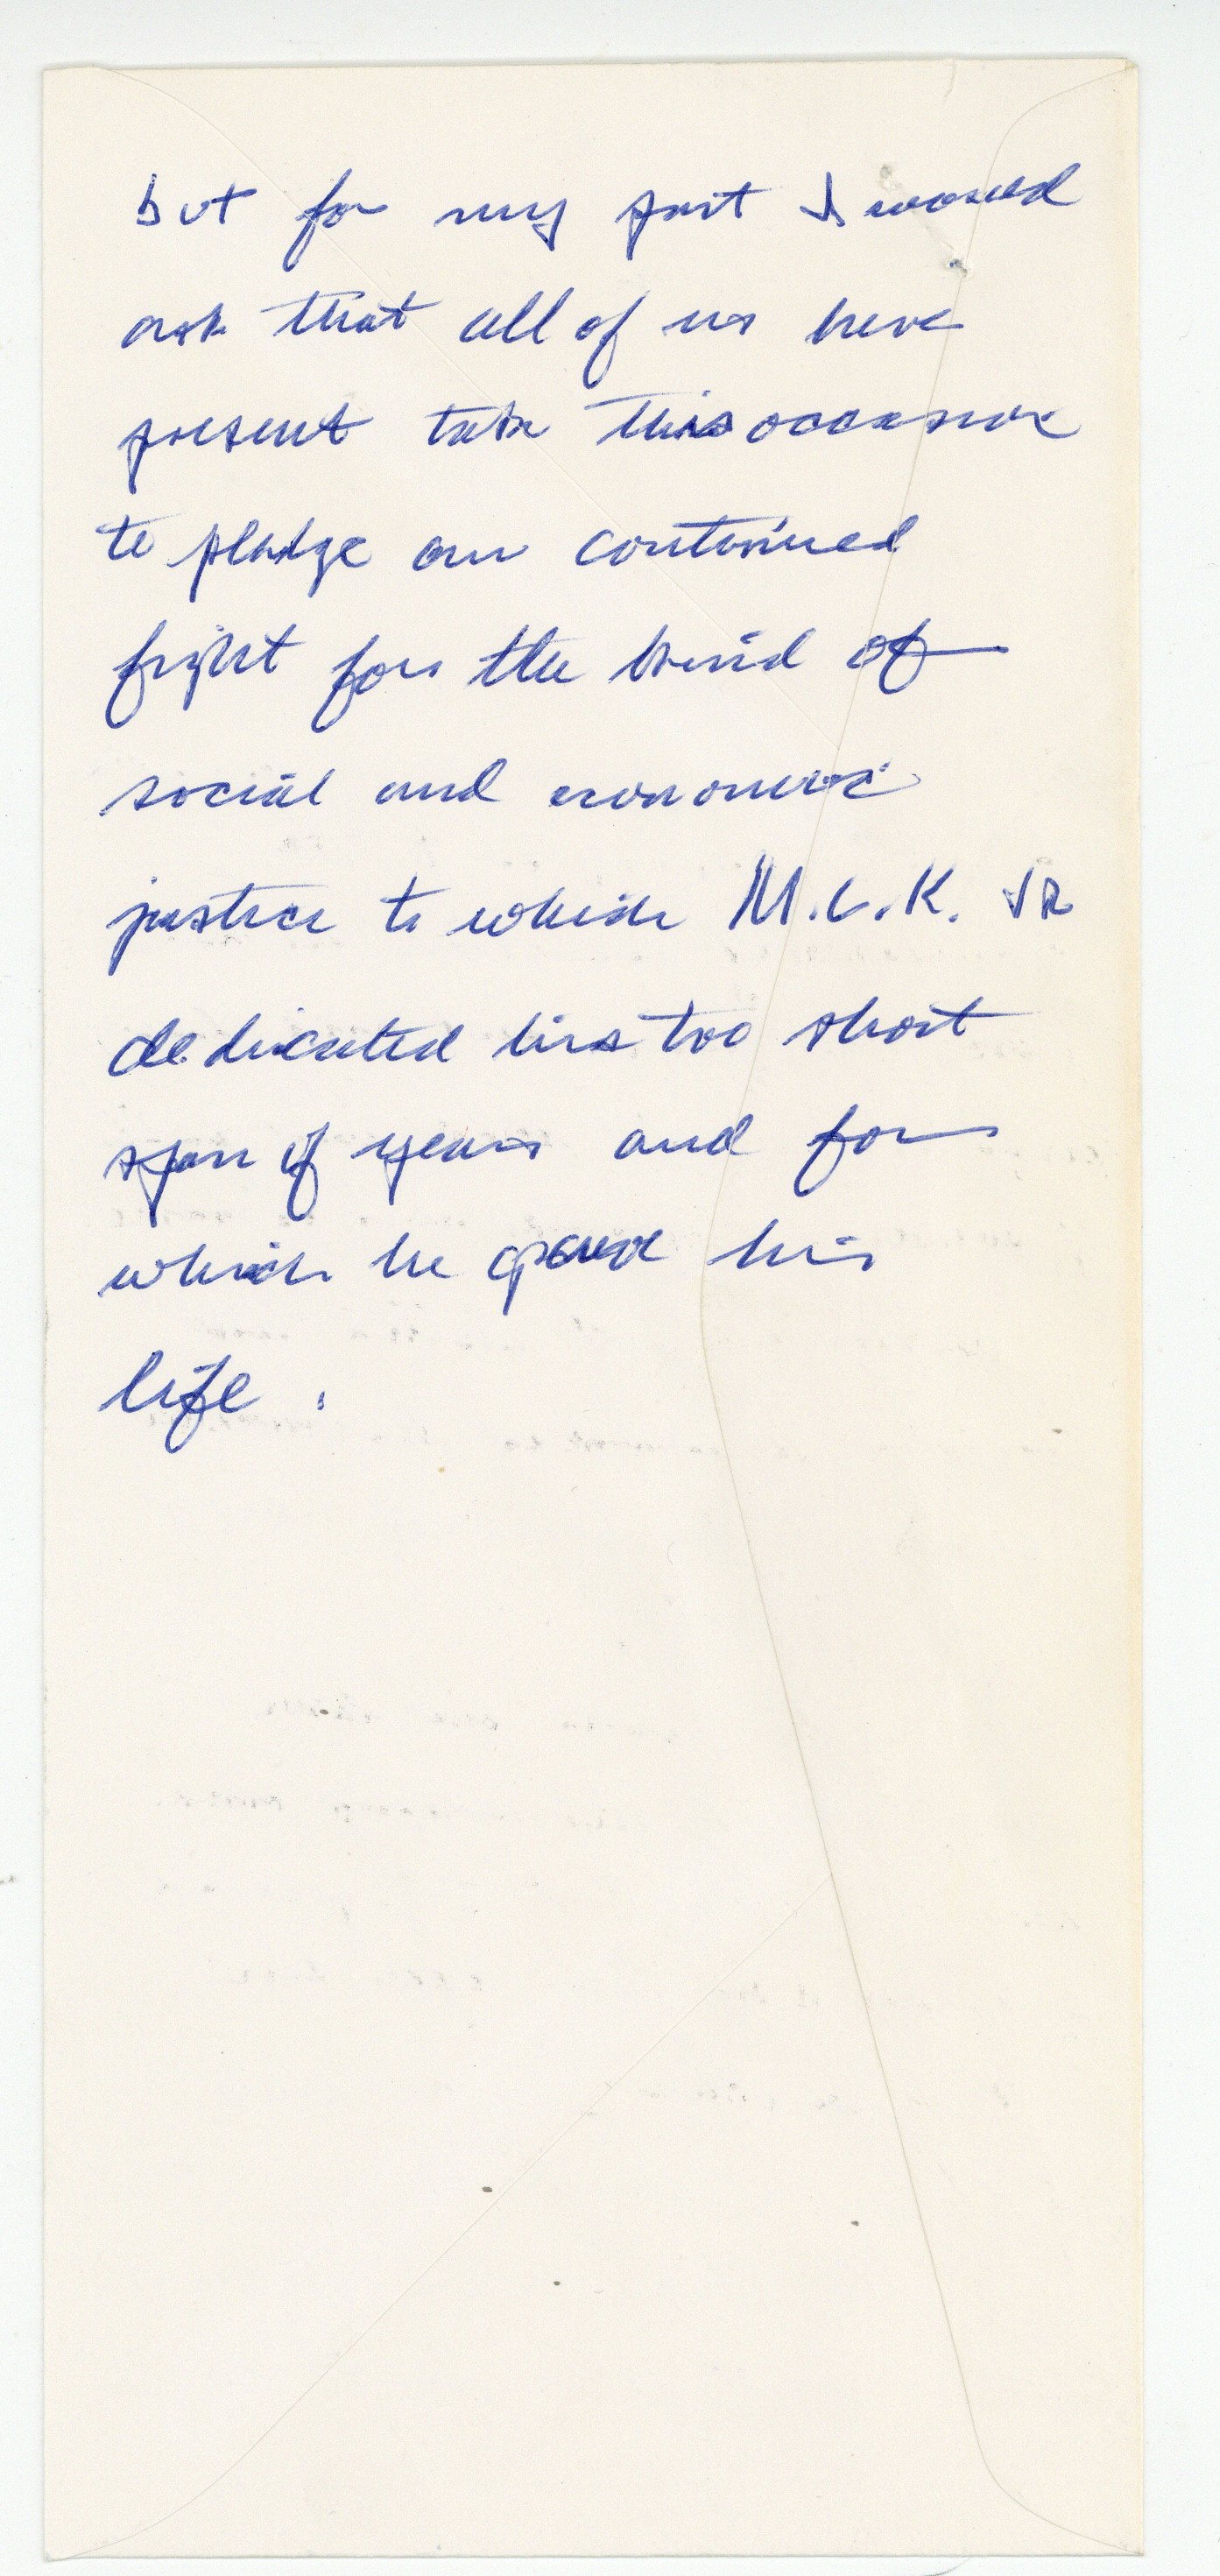 but for my part I would
ask that all of us here
present take this occasion
to pledge our continued
fight for the kind of
social and economic
justice to which M.L.K. JR
dedicated his too short
span of years and for
which he gave his
life.